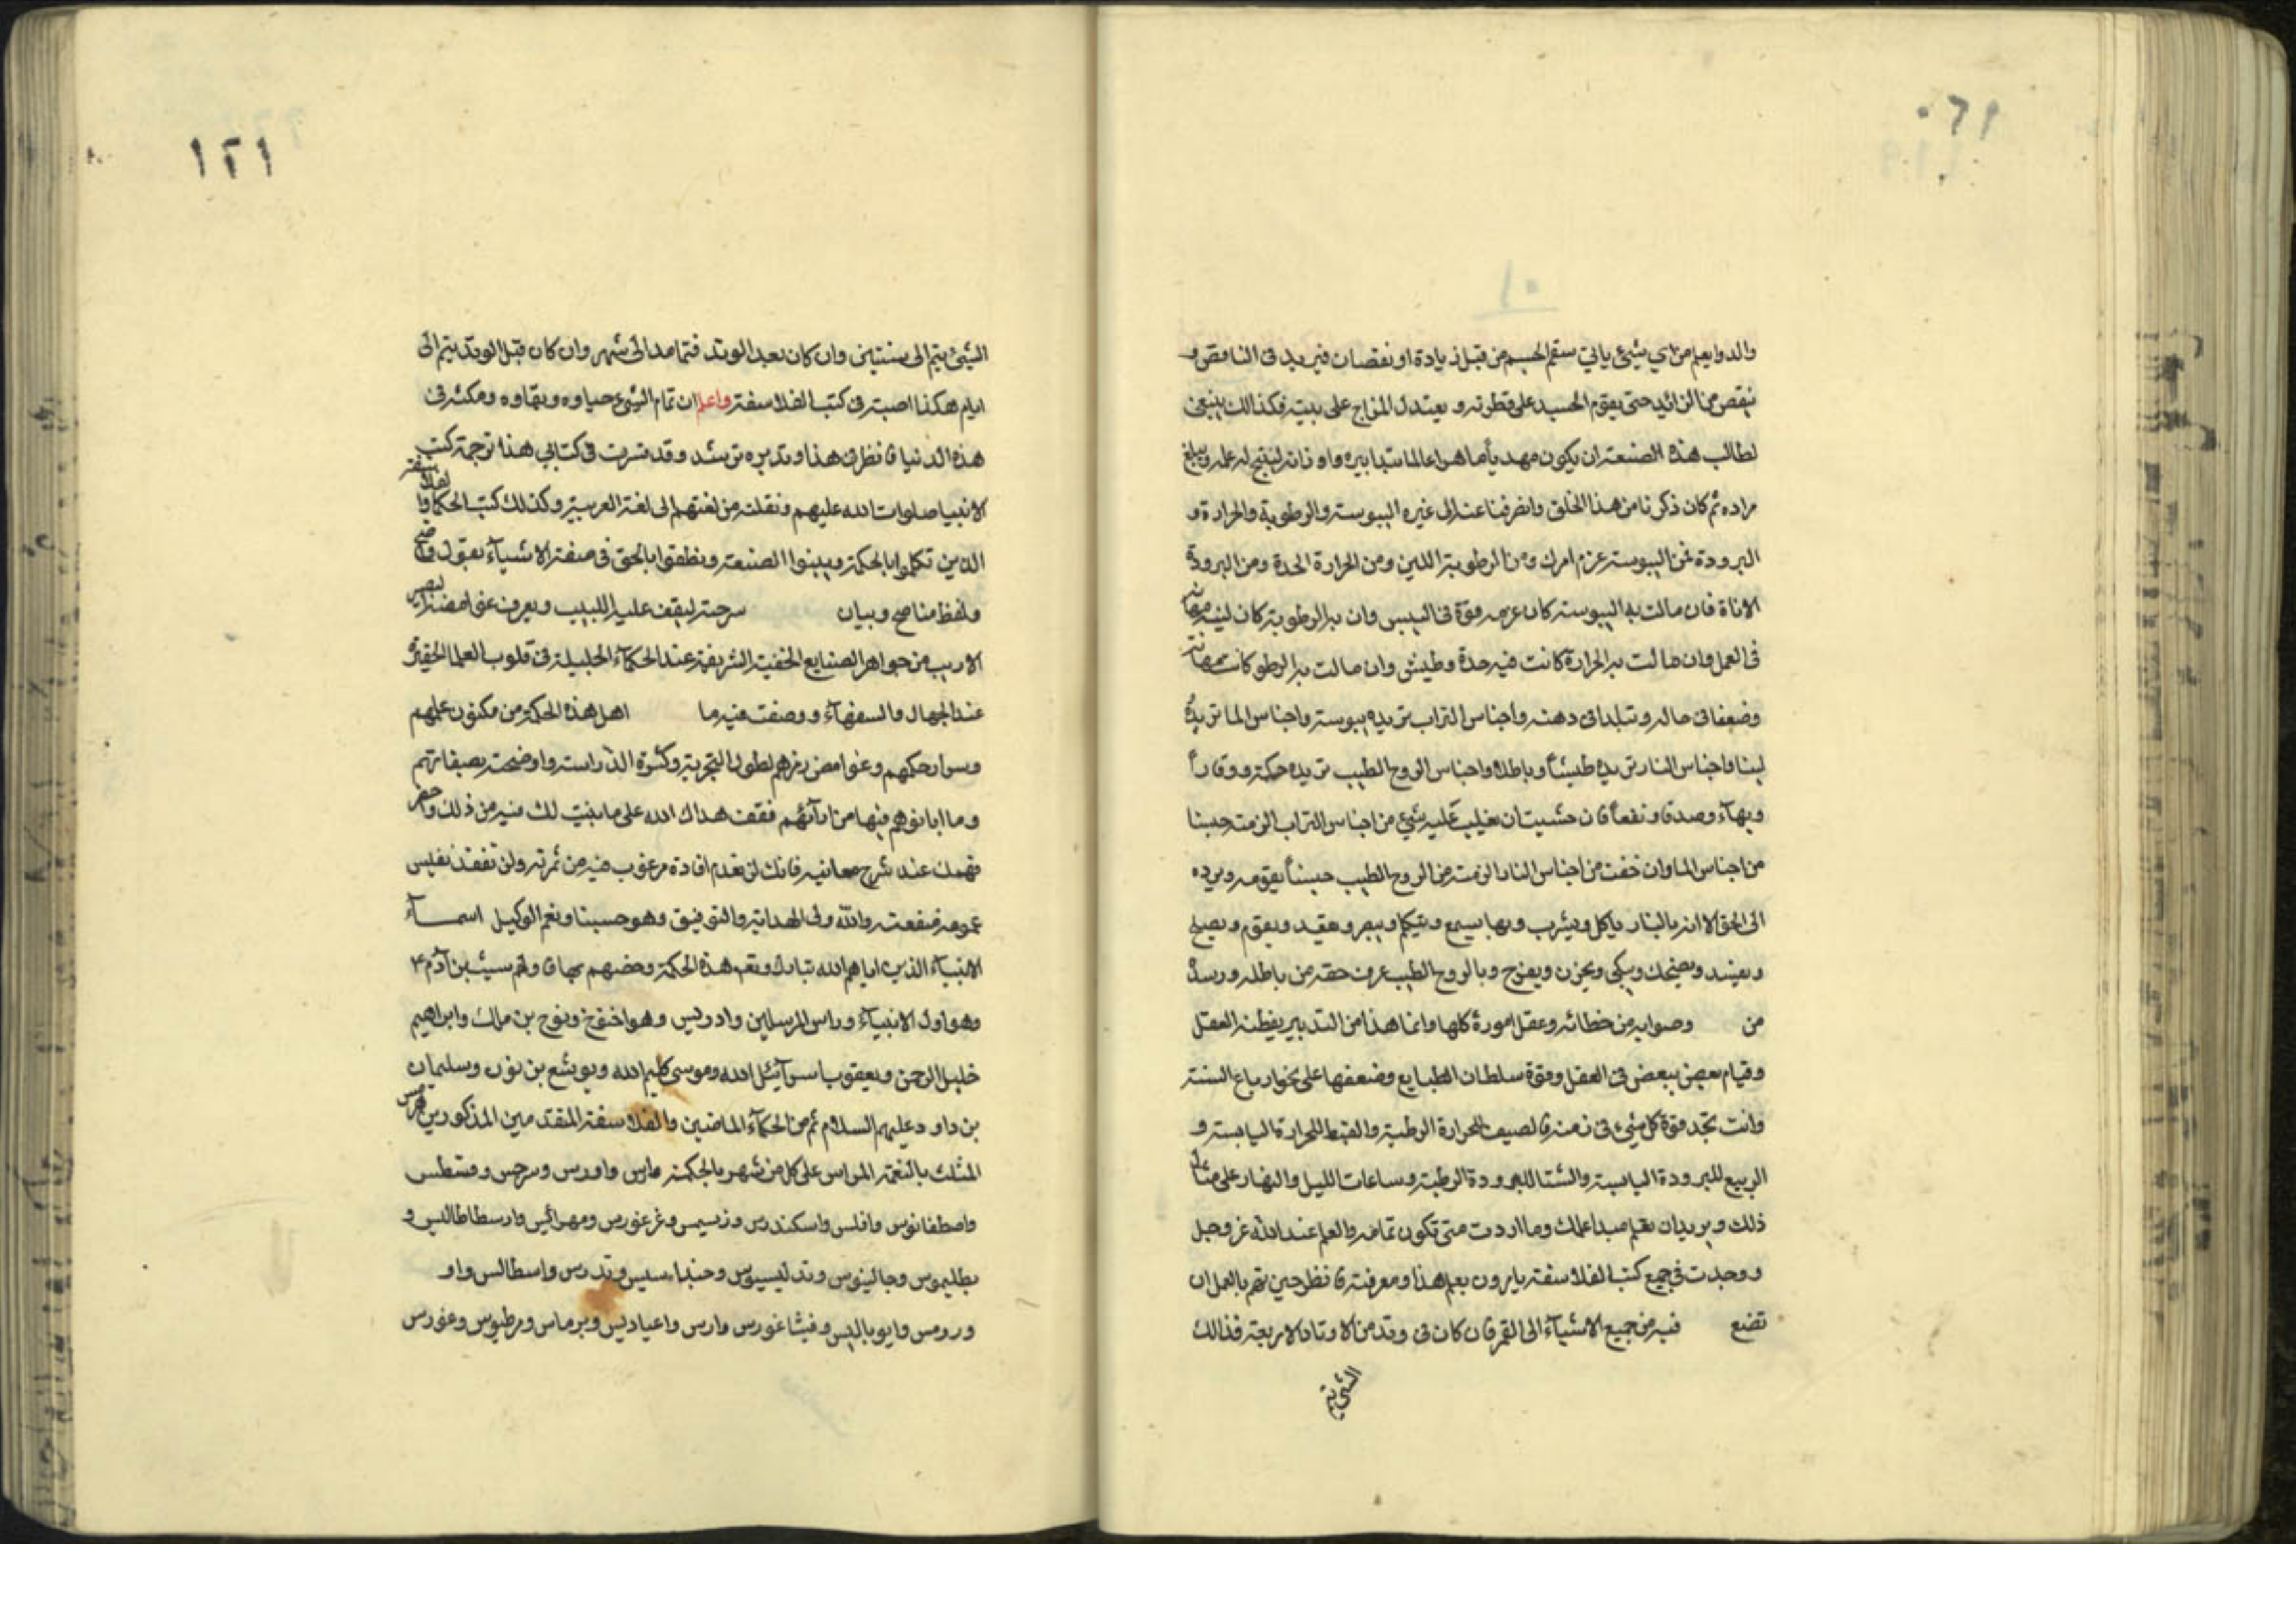 والدوا يعلم من اي شيء ياتي سقم الجسم من قبل زيادة او نقصان فيزيد في الناقص و
ينقص من الزائد حتى يقوم الجسد على فطرته و يعتدل المزاج على بنيته فكذالك ينبغي
لطالب هذه الصنعة ان يكون مهديا ماهرا عالما بتدابيره واوزانه لينتج له عمله ويبلغ
مراده ثم كان ذكرنا من هذا الخلق وانصرفنا عنه الى غيره اليبوسة والرطوبة والحرارة و
البرودة فمن اليبوسة عزم امرك ومن الرطوبة اللين ومن الحرارة الحدة ومن البرودة
الاناة فان مالت به اليبوسة كان عزمه قوة في اليبس وان به الرطوبة كان لينه مهانة
في العمل وان مالت به الحرارة كانت فيه حدة وطيش وان مالت به الرطو كانت مهانة
وضعفا في حاله وتبلدا في دهنه واجناس التراب تزيده يبوسة واجناس الما تزيده
لينا واجناس النار تزيده طيشا وباطلا واجناس الروح الطيب تزيده حكمة ووقارا
وبهاء وصدقا ونفعا فان خشيت ان يغلب عليه شيء من اجناس التراب الزمته حبسا
من اجناس الما وان خفت من اجناس النار الزمته من الروح الطيب حبسا يقومه ويرده
الى الحق الا انه بالنار ياكل ويشرب وبها يسمع ويتكلم ويبصر ويقعد ويقوم ويصلح
ويفسد ويضحك ويبكي ويحزن ويفرح وبالروح الطيب عرف حقه من باطله ورسده
من وصوابه من خطائه وعقل اموره كلها وانما هذا من التدبير يفطنه العقل
وقيام بعض ببعض في العقل وقوة سلطان الطبايع وضعفها على نحو ارباع السنة
وانت تجد قوة كل شيء في زمنه فالصيف للحرارة الرطبة والقيظ للحرارة اليابسة و
الربيع للبرودة اليابسة والشتا للبرودة الرطبة وساعات الليل والنهار على مثال
ذلك ويريد ان يعلم مبدا عملك وما اردت متى تكون تمامه والعلم عند الله عز وجل
ووجدت في جميع كتب الفلاسفة يامرون بعلم هذا ومعرفته فانظر حين تهم بالعمل ان
تضع فيه من جميع الاشياء الى القمر فان كان في وتد من الاوتاد الاربعة فذالك
الشيء يتم
١٢١
الشيء يتم الى سنتين وان كان بعد الوتد فتمامه الى شهر وان كان قبل الوتد يتم الى
ايام هكذا اصبته في كتب الفلاسفة واعلم ان تمام الشيء حياوه وبقاوه ومكثه في
هذه الدنيا فانظر في هذا وتدبره ترشد وقد فسرت في كتابي هذا ترجمة كتب
الانبيا صلوات الله عليهم ونقلته من لغتهم الى لغة العربية وكذلك كتب الحكما والفلاسفة
الذين تكلموا بالحكمة وبينوا الصنعة ونطقوا بالحق في صفة الاشياء بقول واضح
ولفظ مناصح وبيان سرحته ليقف عليه اللبيب ويعرف غوامضه البصير
الاريب من جواهر الصنايع الخفية الشريفة عند الحكماء الجليلة في قلوب العلما الحقيرة
عند الجهال والسفهاء ووصفت فيه ما اهل هذه الحكمة من مكنون علمهم
وسرار حكمهم وغوامض رمزهم لطول التجربة وكثرة الدراسة واوضحته بصفاتهم
وما ابانوهم فيها من ارآئهم فقف هداك الله على ما بينت لك فيه من ذلك واحضر
فهمك عند شرح معانيه فانك لن تعدم افادة مرغوب فيه من ثمرته ولن تفقد نفيس
منفعته والله ولي الهداية والتوفيق وهو حسبنا ونعم الوكيل اسماء
الانبياء الذين اباهم الله تبارك وتعه هذه الحكمة وخصهم بها فاولهم سيث بن آدم ٤
وهو اول الانبياء وراس المرسلين وادريس وهو اخنوخ ونوح بن مالك وابراهيم
خليل الرحمن ويعقوب اسرآئيل الله وموسى كليم الله ويوشع بن نون وسليمان
بن داود عليهم السلام ثم من الحكماء الماضين والفلاسفة المتقدمين المذكورين هرمس
المثلث بالنعمة المراس على كل من شهر بالحكمة مارس واورس وسرجس وقسطس
واصطفانوس وافلس واسكندرس وزسيمس وغرغورس ومهرائيس وارسطاطاليس و
بطليموس وجالينوس وتدليسيوس وتدرس واسطالس واو
ورومس وايوباليس وفيثاغورس وارس واعياديس وبرماس ومرطيوس وغورس